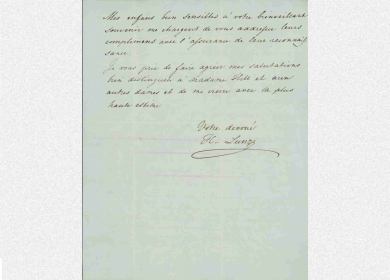 Mes enfans bien sensibles à votre bienveillant
souvenir me chargent de vous addresser leurs
complimens avec l'assurance de leur reconnais
sance.
Je vous prie de faire agréer mes salutations
bien distinguées à madame Hill et aux
autres dames et de me croire avec la plus
haute estime
Votre devoué